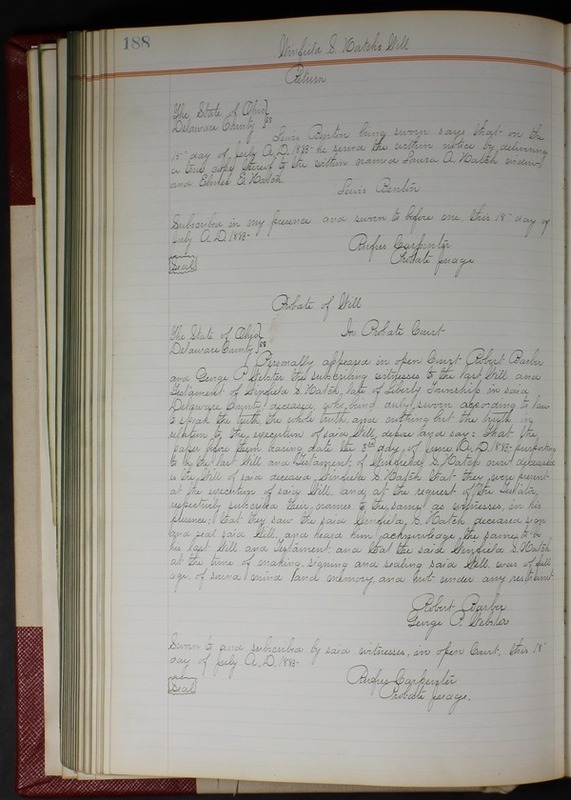 188
Winfield S. Hatch's Will
Return
The State of Ohio }
Delaware County } ss
Lewis Benton being sworn says that on the
15" day of July A.D. 1885 he served the within notice by delivering
a true copy thereof to the within named Laura A. Hatch widow
and E. Hatch
Lewis Benton
Subscribed in my presence and sworn to before me, this 18" day of
July A.D. 1885-
Rufus Carpenter
Probate Judge
Seal
Probate of Will
The State of Ohio } In Probate Court
Delaware County } ss
Personally appeared in open Court Robert Barber
and George P. Webster the subscribing witnesses to the last Will and
Testament of Winfield S. Hatch, late of Liberty Township in said
Delaware County deceased, who being duly sworn according to law
to speak the truth the whole truth, and nothing but the truth, in
relation to the execution of said Will, depose and say: that the
paper before them bearing date the 3rd day of June A.D. 1885- purporting
to be the last Will and Testament, of Winfield S. Hatch now deceased
is the Will of said deceased, Winfield S. Hatch that they were present
at the execution of said Will, and, at the request of the Testator,
respectively subscribed their names to the same, as witnesses, in his
presence; that they saw the said Winfield, S. Hatch deceased sign
and seal said Will, and heard him acknowledge the same to be
his last Will and Testament, and that the said Winfield S. Hatch
at the time of making, signing and sealing said Will was of full
age, of sound mind and memory, and not under any restraint
Robert Barber
George P. Webster
Sworn to and subscribed by said witnesses, in open Court, this 18"
day of July A.D. 1885-
Rufus Carpenter
Probate Judge.
Seal